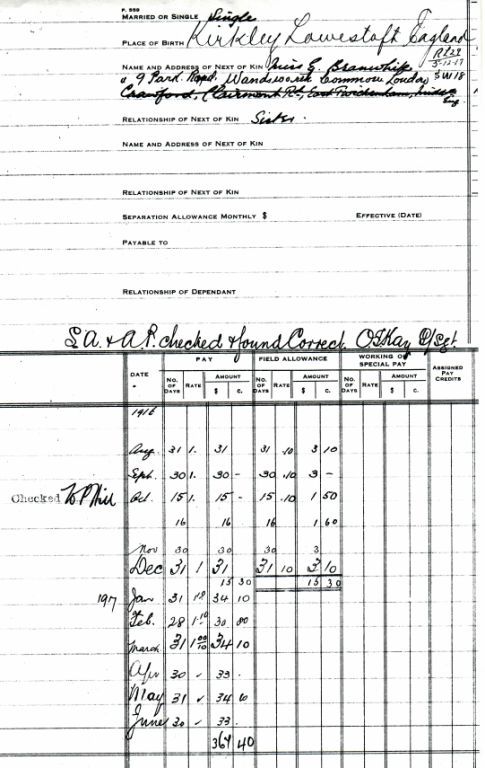 F. 959
MARRIED OR SINGLE Single
PLACE OF BIRTH Kirkley Lowestoft England
NAME AND ADDRESS OF NEXT OF KIN Miss G.
9 Park Road, Wandsworth Common London SW18
Crawford, Clairmont Rd, East Twickenham,
Eng.
RELATIONSHIP OF NEXT OF KIN Sister.
NAME AND ADDRESS OF NEXT OF KIN
RELATIONSHIP OF NEXT OF KIN
SEPARATION ALLOWANCE MONTHLY $ EFFECTIVE (DATE)
PAYABLE TO
RELATIONSHIP OF DEPENDANT
S.A. & A.P. checked & found Correct. /Sgt.
PAY FIELD ALLOWANCE WORKING OR SPECIAL PAY ASSIGNED PAY CREDITS
DATE NO. OF DAYS RATE AMOUNT $ C. NO. OF DAYS RATE AMOUNT $ C. NO. OF DAYS RATE AMOUNT $ C.
1916
Aug. 31 1. 31 31 .10 3 10
Sept. 30 1. 30 - 30 .10 3 -
Checked W.P. Hill Oct. 15 1. 15 - 15 .10 1 50
16 16 16 1 60
Nov 30 30 30 3
Dec 31 1 31 31 10 3 10
15 30 15 30
1917 Jan 31 1.10 34 10
Feb. 28 1.10 30 80
March 31 1 00 10 34 10
Apr 30 ✓ 33 .
May 31 ✓ 34 10
June 30 ✓ 33 .
367 40